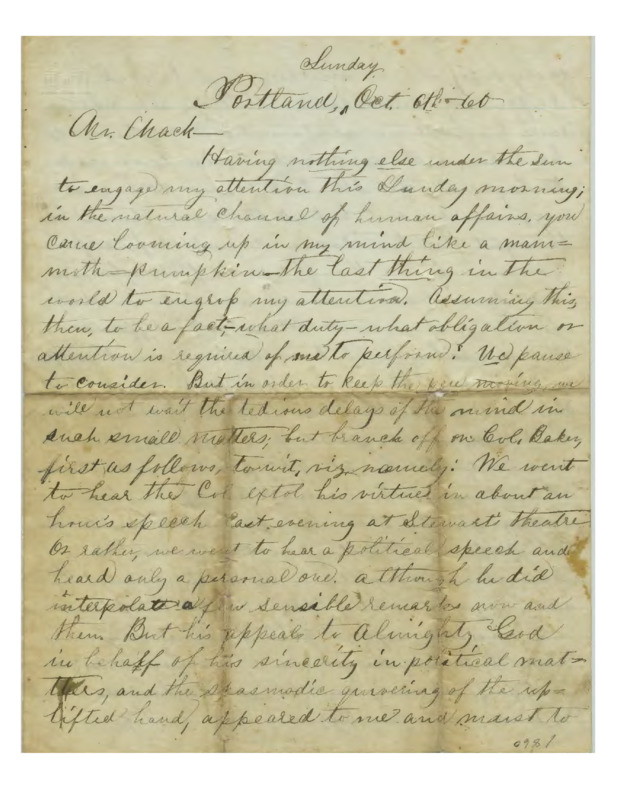 Sunday
Portland, Oct. 6th - 60
Mr. Chack—
Having nothing else under the Sun
to engage my attention this Sunday morning;
in the natural channel of human affairs, you
came looming up in my mind like a mam=
moth—Pumpkin—the last thing in the
world to engross my attention. Assuming this,
then, to be a fact,—what duty—what obligation or
attention is required of me to perform? We pause
to consider. But in order to keep the pen moving we
will not wait the tedious delays of the mind in
such small matters, but branch off on Col. Baker,
first as follows, to wit, viz, namely: We went
to hear the Col extol his virtues in about an
hour's speech last evening at Stewart's theatre
Or rather, we went to hear a political speech and
heard only a personal one. although he did
interpolate a few sensible remarks now and
then. But his appeals to Almighty God
in behalf of his sincerity in political mat=
ters, and the spasmodic quivering of the up=
lifted hand, appeared to me and must to
0981